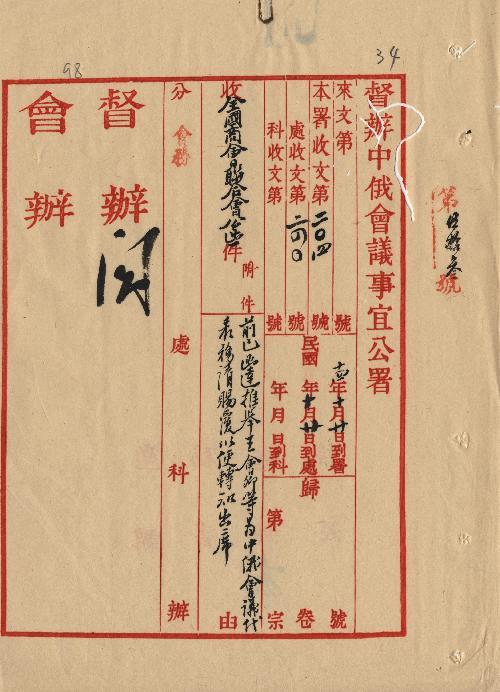 34
98
第
號
督辦中俄會議事宜公署
來文第 號
本署收文第二〇四號
處收文第一六〇號
科收文第 號
民國
十四年十月廿日到署
年十月廿日到處
年 月 日到科
歸
第 卷宗 號
收全國商會聯合會公函件
附件
前已函達推舉王會卿等為中俄會議代
表務請賜覆以便轉知出席
由
分 會務 處 科 辦
督辦
閱
會辦